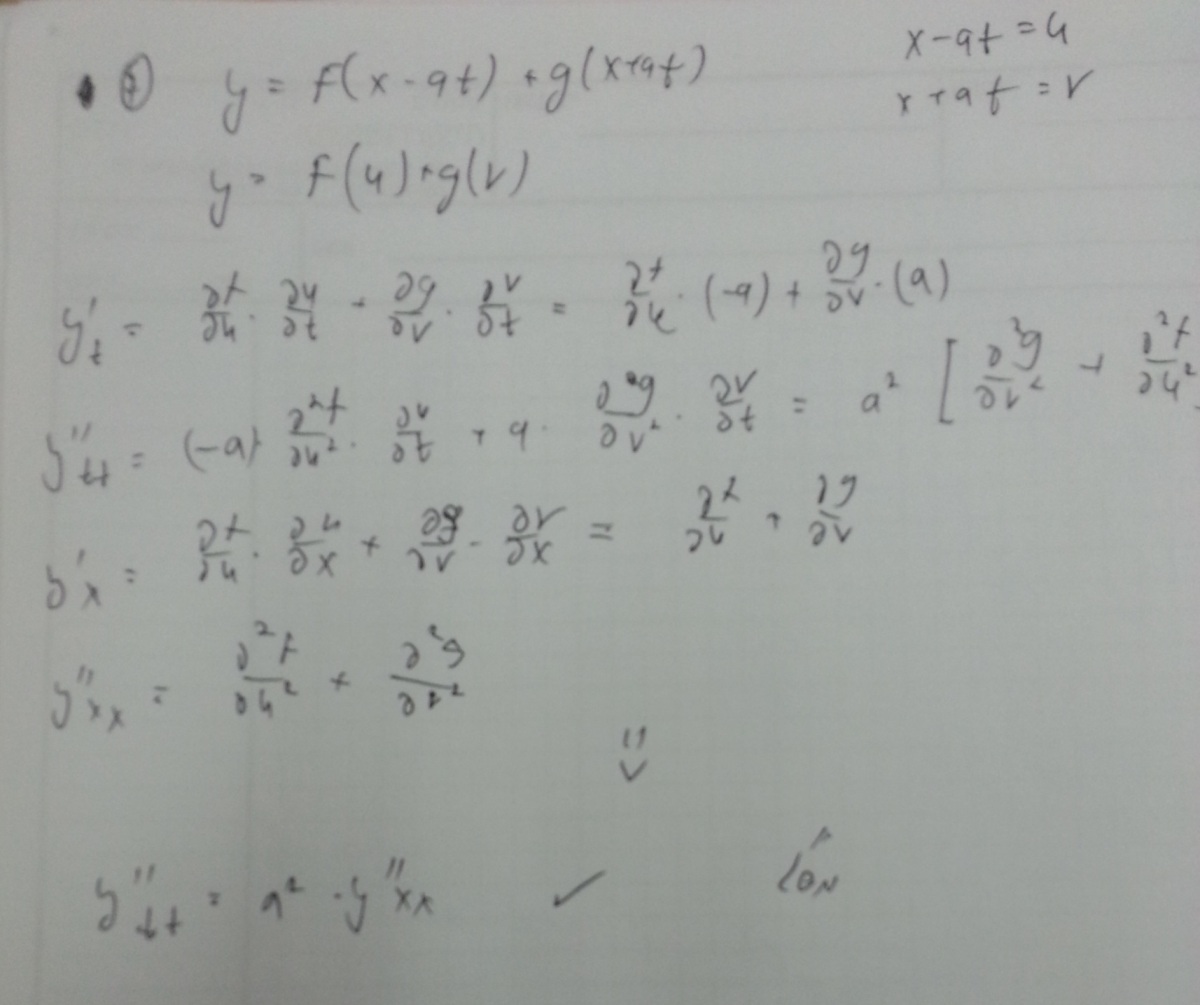 ⑦ y = f(x-at) + g(x+at) x-at = u
x+at = v
y = f(u) + g(v)
y't = ∂f/∂u · ∂u/∂t + ∂g/∂v · ∂v/∂t = ∂f/∂u · (-a) + ∂g/∂v · (a)
y''tt = (-a) · ∂²f/∂u² · ∂u/∂t + a · ∂²g/∂v² · ∂v/∂t = a² [ ∂²g/∂v² + ∂²f/∂u²
y'x = ∂f/∂u · ∂u/∂x + ∂g/∂v · ∂v/∂x = ∂f/∂u + ∂g/∂v
y''xx = ∂²f/∂u² + ∂²g/∂v²
y''tt = a² · y''xx ✓